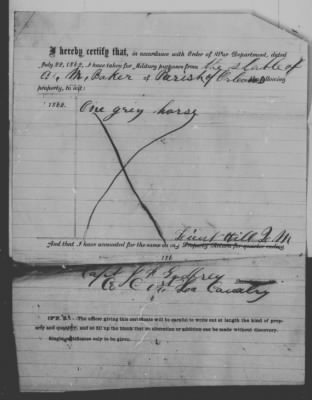 I hereby certify that, in accordance with Order of War Department, dated
July 22, 1862, I have taken for Military purposes from the stable of
A. M. Baker of Parish of Orleans following
property, to wit:
1862. One grey horse
Lieut Hill
And that I have accounted for the same on my Property Return for quarter ending
186
Capt J F Godfrey
Co C 1st Loa Cavalry
N. B.—The officer giving this certificate will be careful to write out at length the kind of prop-
erty and quantity, and so fill up the blank that no alteration or addition can be made without discovery.
Single certificates only to be given.